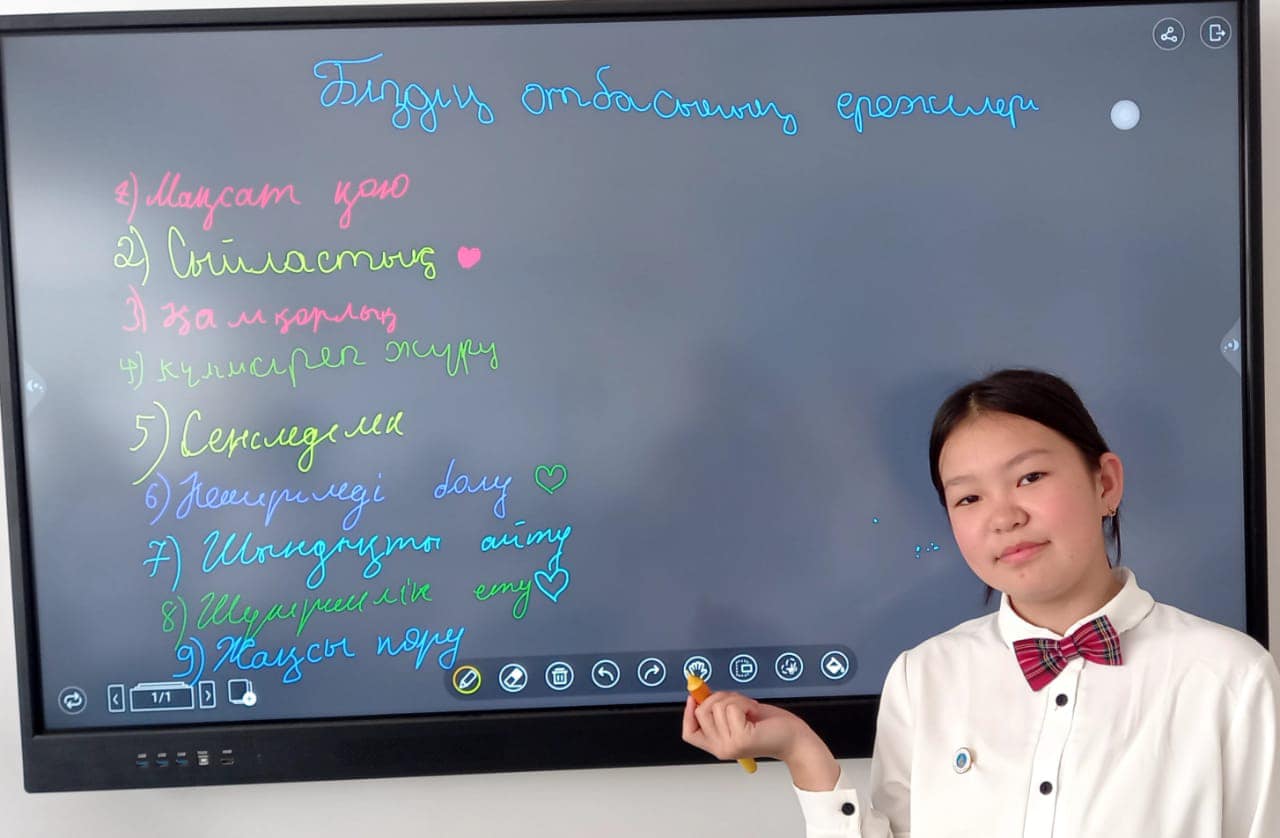 Біздің отбасының ережелері
1) Мақсат қою
2) Сыйластық
3) Қамқорлық
4) күлімсіреп жүру
5)
6) Кешірімді болу
7) Шындықты айту
8) Шүкіршілік ету
9) Жақсы көру
1/1